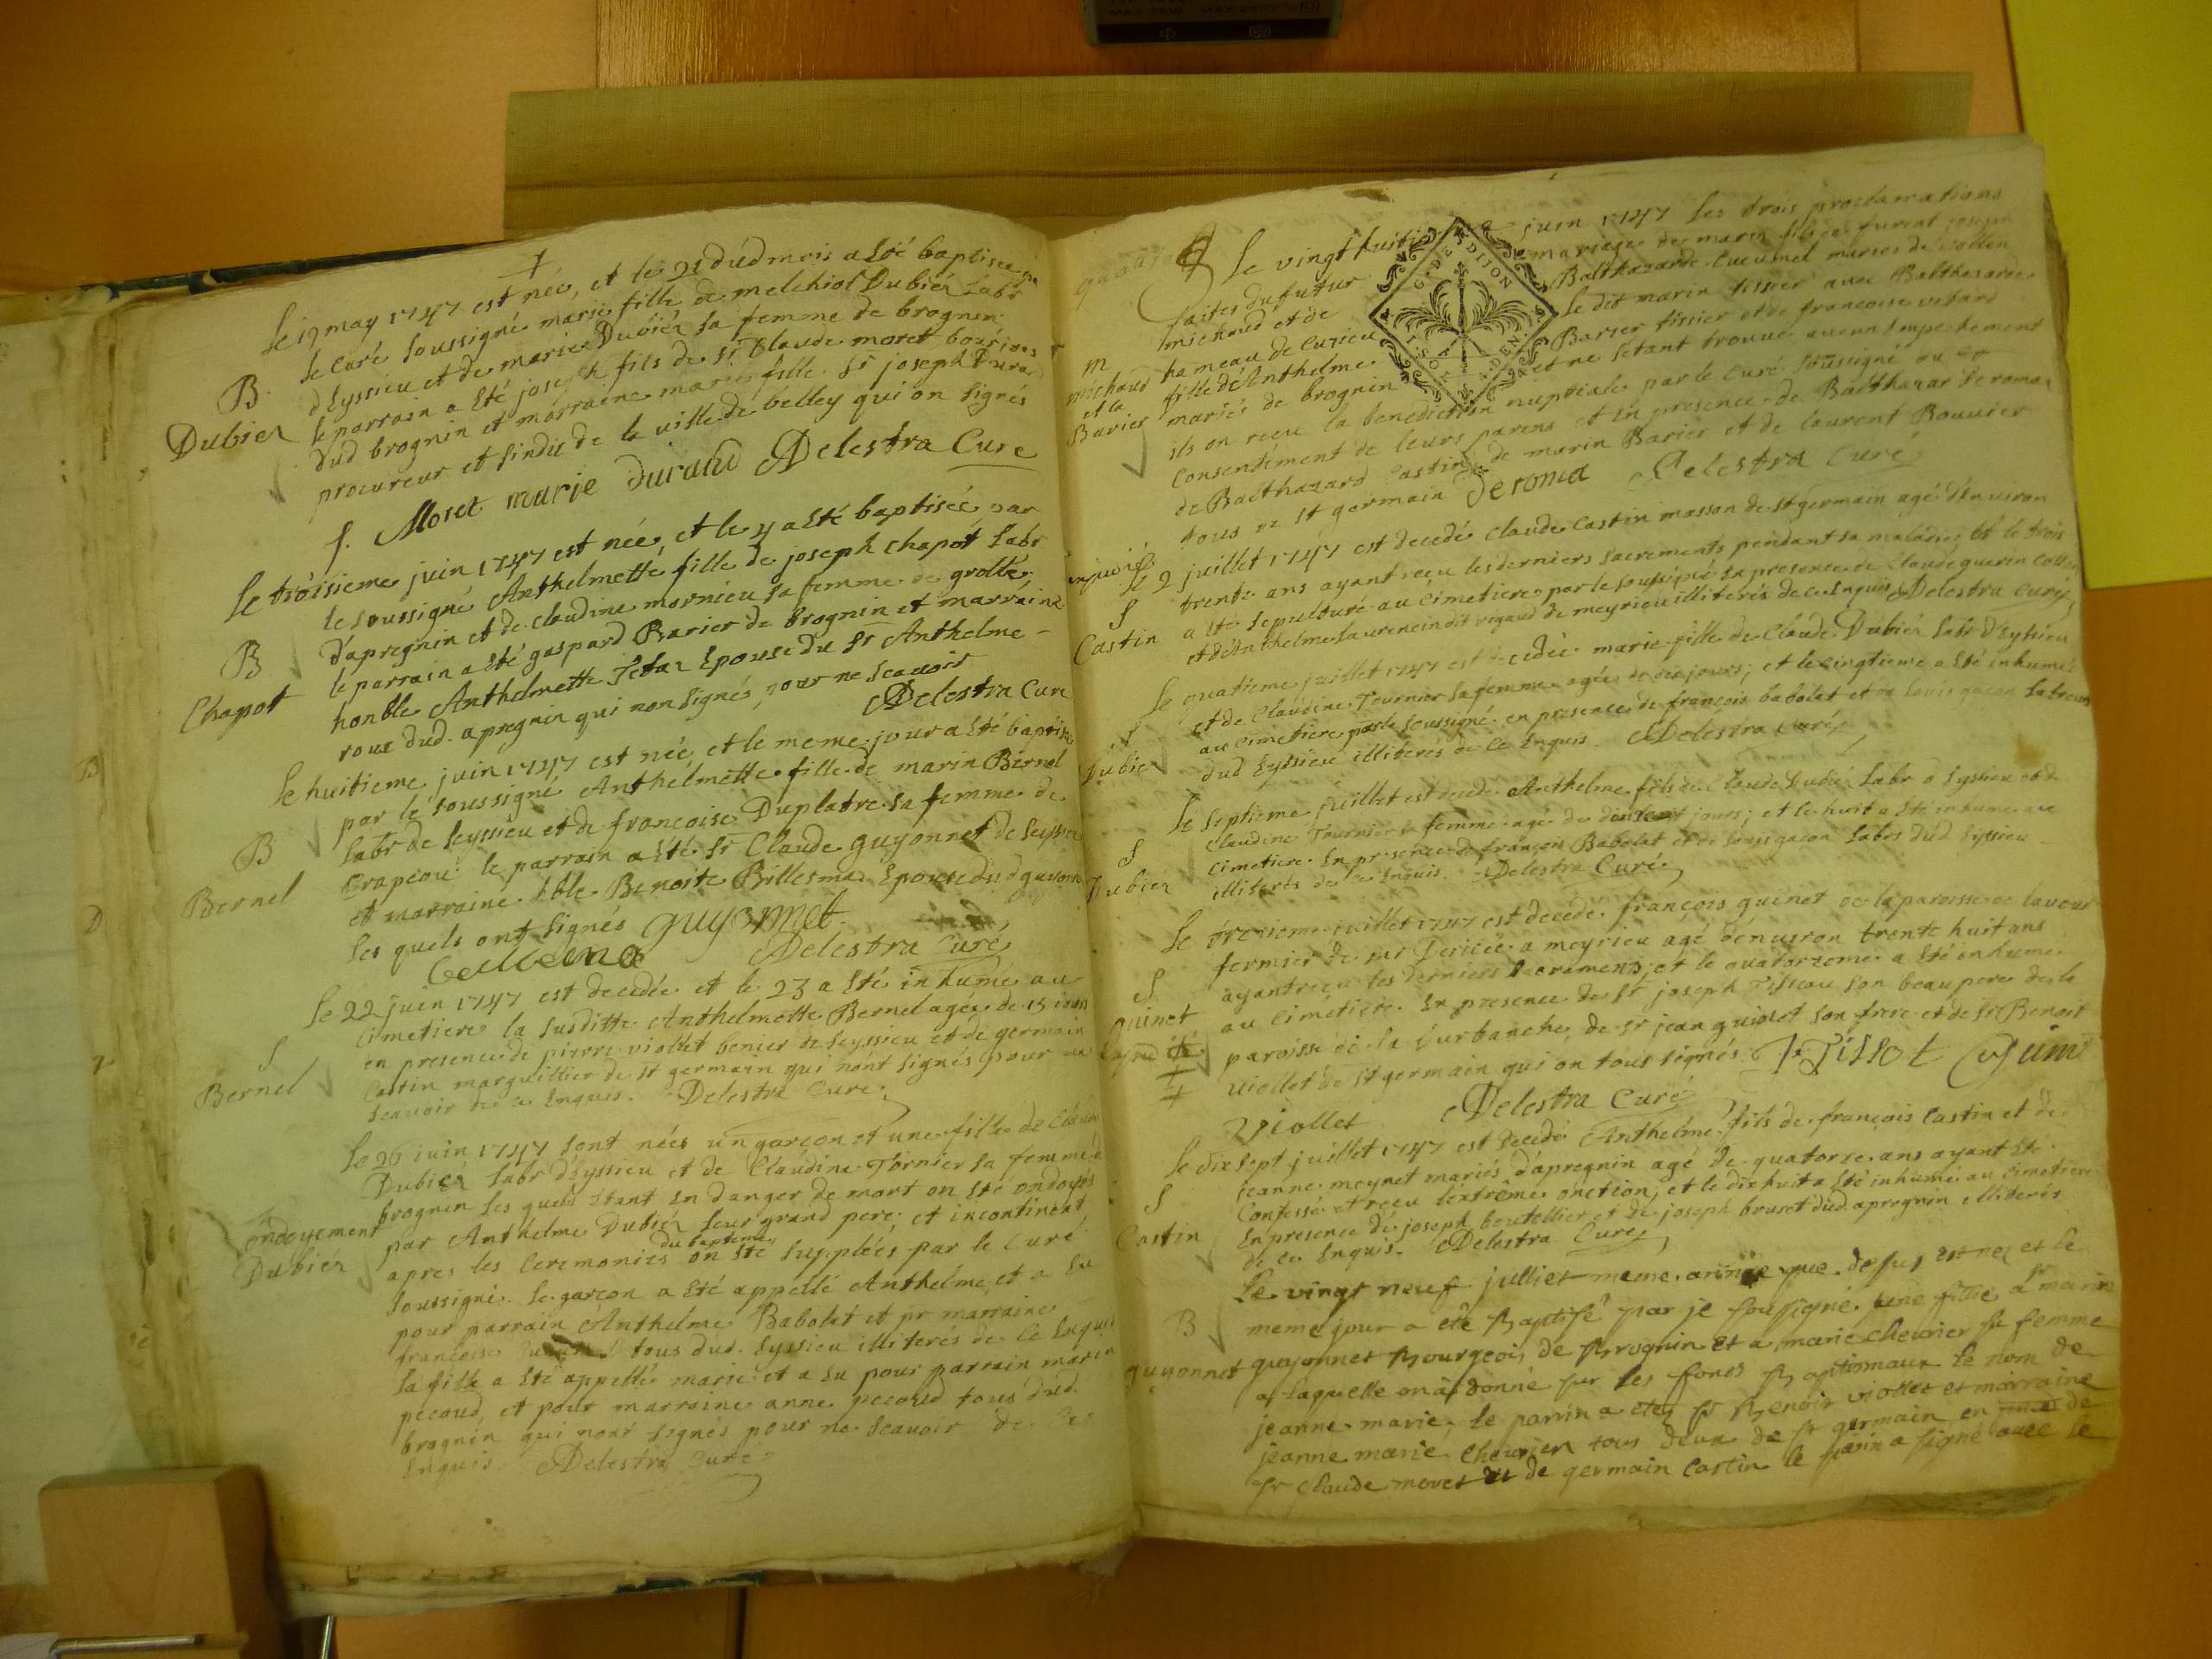 Le 19 may 1747 est née, et le 21 dud mois a Eté baptisée par
B. le curé soussigné marie fille de melchiol Dubier Labr
Dubier d'Eyssieu et de marie Dubier sa femme de brognin
le parrain a Eté joseph fils de Sr Claude moret bourjois
dud brognin et marraine marie fille Sr joseph Durand
procureur et sindic de la ville de belley qui on signés
f. Moret marie durand Delestra Curé
Le troisieme juin 1747 est née, et le y a Eté baptisée par
le soussigné Anthelmette fille de joseph chapot Labr
B d'apregnin et de claudine mornieu sa femme de
Chapot le parrain a Eté gaspard Barier de brognin et marraine
honble Anthelmette Epouse du Sr Anthelme
roux dud. apregnin qui non signés, pour ne scavoir
Delestra Curé
Le huitieme juin 1747 est née, et le meme jour a Eté baptisée
par le soussigné Anthelmette fille de marin Bernel
B Labr de Seyssieu et de francoise Duplatre sa femme de
Bernel crapeou le parrain a Eté Sr Claude guyonnet de Seyssieu
et marraine Benoite Billesma Epouse dud guyonnet
les quels ont signés guyonnet
Delestra Curé
Le 22 juin 1747 est decedée et le 23 a Eté inhumé au
S cimetiere la susditte Anthelmette Bernel agée de 15 jours
Bernel en presence de pierre viollet benier de Seyssieu et de germain
Castin marguillier de st germain qui n'ont signés pour ne
scavoir de ce Enquis. Delestra Curé
Le 26 juin 1747 sont nées un garcon et une fille de Claude
Dubier Labr d'Eyssieu et de Claudine Tornier sa femme de
brognin les quels Etant En danger de mort on Eté ondoyés
ondoyement par Anthelme Dubier leur grand pere, et incontinent
du bapteme
Dubier apres les Ceremonies on Eté supplées par le Curé
soussigné. le garcon a Eté appellé Anthelme, et a Eu
pour parrain Anthelme Babolat et pr marraine
francoise tous dud. Eyssieu illiterés de ce Enquis
la fille a Eté appellée marie et a Eu pour parrain marin
pecoud, et pour marraine anne pecoud tous dud.
brognin qui n'ont signés pour ne scavoir de ce
Enquis. Delestra Curé
G. DE DIJON
Le vingt huitieme juin 1747 Les trois proclamations
faites du futur mariage de marin fils de furent joseph
m michaud et de Balthazarde Cucumel mariés de
michaud hameau de Cuzieu le dit marin tissier avec Balthazarde
et la fille d'Anthelme Barier tissier et de francoise
Barier mariés de brognin et ne s'etant trouvé aucun Empechement
ils on reçu la benediction nuptiale par le Curé soussigné du
Consendement de leurs parens et En presence de Balthazar Deroman
de Balthazard Castin de marin Barier et de laurent Bouvier
tous de st germain Deroma Delestra Curé
Le 2 juillet 1747 est decedé Claude Castin masson de st germain agé d'Environ
S trente ans ayant reçu les derniers sacrements pendant sa maladie; et le trois
Castin a Eté sepulturé au cimetiere par le soussigné En presence de Claude guerin
et d'Anthelme Laurencin dit rigaud de meyrieu illiterés de ce Enquis Delestra Curé
Le quatieme juillet 1747 est decedée marie fille de Claude Dubier Labr d'Eyssieu
et de Claudine Tournier sa femme agée de jours; et le a Eté inhumée
au cimetiere par le soussigné en presence de françois babolat et de Louis gacon Labreurs
Dubier dud Eyssieu illiterés de Ce Enquis. Delestra Curé
Le septieme juillet est decedé Anthelme fils de Claude Dubier Labr d'Eyssieu et de
Claudine Tournier sa femme agé de jours; et le huit a Eté inhumé au
S cimetiere En presence de françois Babolat et de Louis gacon Labrs dud Eyssieu
Dubier illiterés de ce Enquis. Delestra Curé
Le treisieme juillet 1747 est decedé françois guinet de la paroisse de lavour
fermier de mr a meyrieu agé d'enuiron trente huit ans
S ayant reçu les derniers sacrements; et le quatorzeme a Eté inhumé
guinet au cimetiere. En presence de Sr joseph Tissau son beau pere de la
paroisse de la burbanche, de Sr jean guinet son frere et de Sr Benoit
viollet de st germain qui on tous signés. J. Tissot
Viollet Delestra Curé
Le dix sept juillet 1747 est decedé Anthelme fils de françois Castin et de
S jeanne meynet mariés d'apregnin agé de quatorze ans ayant Eté
Castin Confessé et reçu l'extrême onction, et le dix huit a Eté inhumé au cimetiere
En presence de joseph boutellier et de joseph brunet dud apregnin illiterés
de ce Enquis. Delestra Curé
Le vingt neuf julliet meme année que desus est née et le
B meme jour a eté Baptisé par je soussigné une fille a Sr marin
guyonnet guyonnet Bourgeois de Brognin et a marie chevrier sa femme
a laquelle on a donné sur les fonds Baptismaux le nom de
jeanne marie, le parrin a eté Sr Benoit viollet et marraine
jeanne marie Chevrier tous deux de st germain en de
Sr Claude moret et de germain Castin le parin a signé avec le